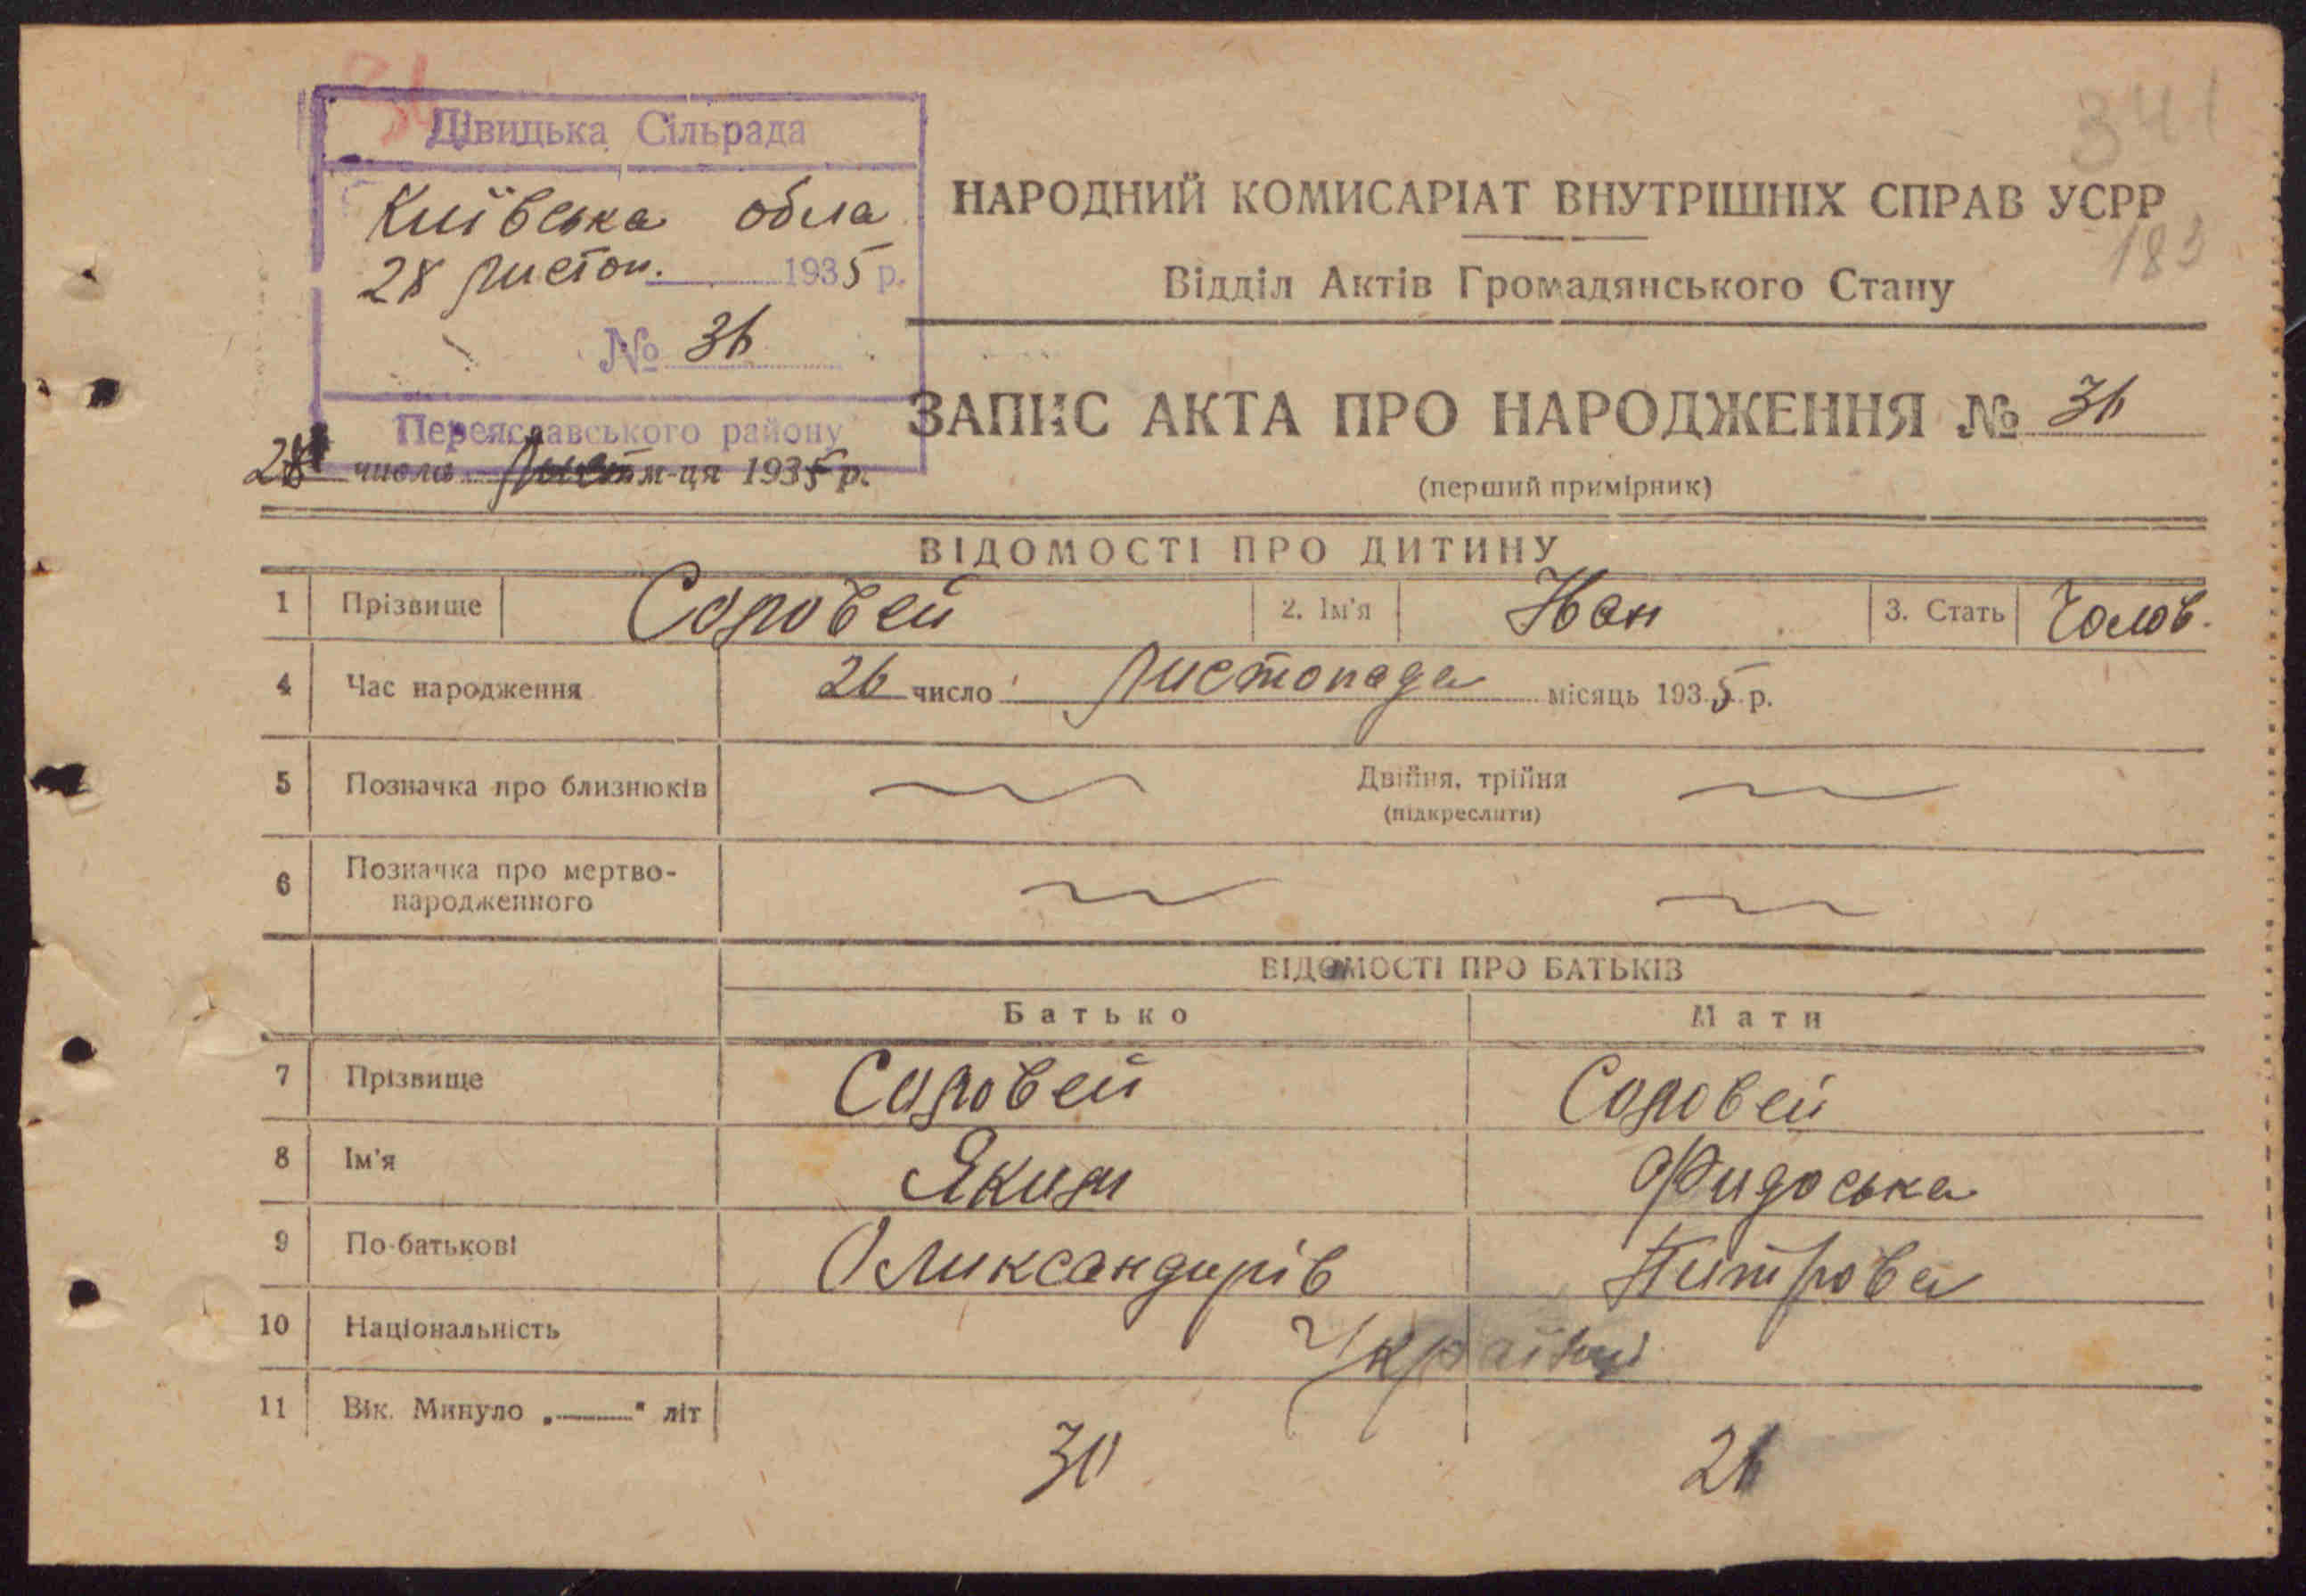 341
Дівицька Сільрада
Київська обла
28 листоп. 1935 р.
№ 36
Переяславського району
НАРОДНИЙ КОМИСАРІАТ ВНУТРІШНІХ СПРАВ УСРР
183
Відділ Актів Громадянського Стану
ЗАПИС АКТА ПРО НАРОДЖЕННЯ № 36
28 числа Лист м-ця 1935 р.
(перший примірник)
ВІДОМОСТІ ПРО ДИТИНУ
1 Прізвище Соловей 2. Ім'я Иван 3. Стать Чолов.
4 Час народження 26 число листопада місяць 1935 р.
5 Позначка про близнюків Двійня, трійня
(підкреслити)
6 Позначка про мертво-
народженного
ВІДОМОСТІ ПРО БАТЬКІВ
Батько Мати
7 Прізвище Соловей Соловей
8 Ім'я Яким Фидоська
9 По-батькові Олександирів Питрова
10 Національність Україньці
11 Вік. Минуло „——" літ 30 26